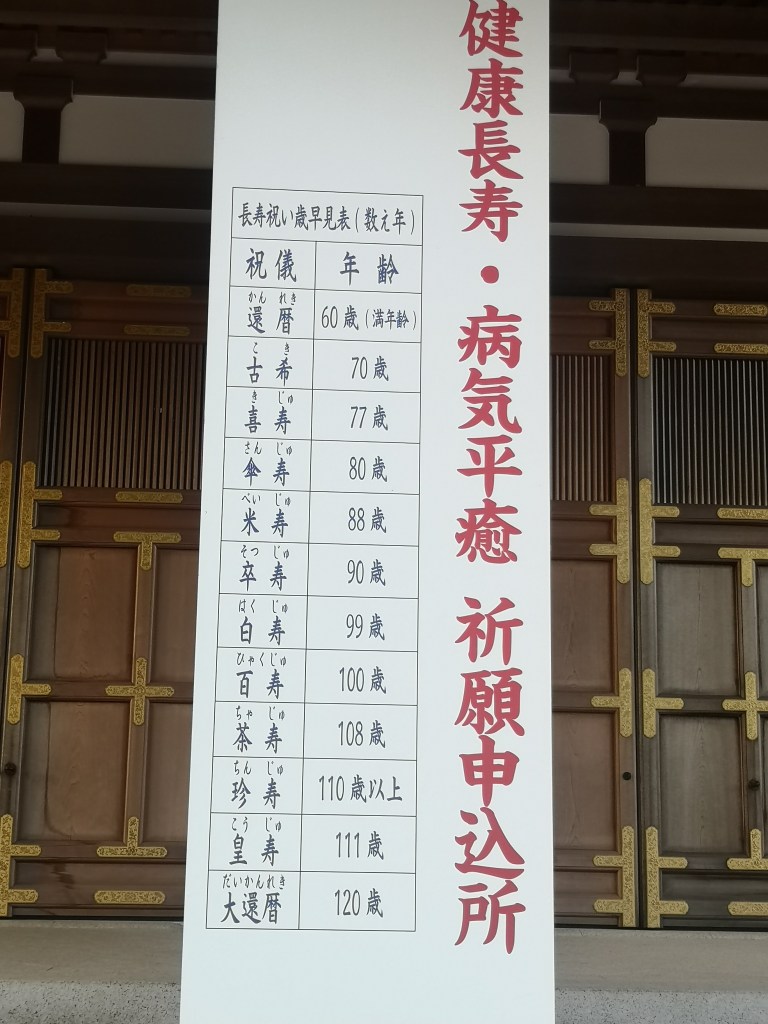 健康長寿・病気平癒 祈願申込所
長寿祝い歳早見表(数え年)
祝儀 年齢
かん れき
還暦 60歳(満年齢)
こ き
古希 70歳
き じゅ
喜寿 77歳
さん じゅ
傘寿 80歳
べい じゅ
米寿 88歳
そつ じゅ
卒寿 90歳
はく じゅ
白寿 99歳
ひゃくじゅ
百寿 100歳
ちゃ じゅ
茶寿 108歳
ちん じゅ
珍寿 110歳以上
こう じゅ
皇寿 111歳
だいかんれき
大還暦 120歳